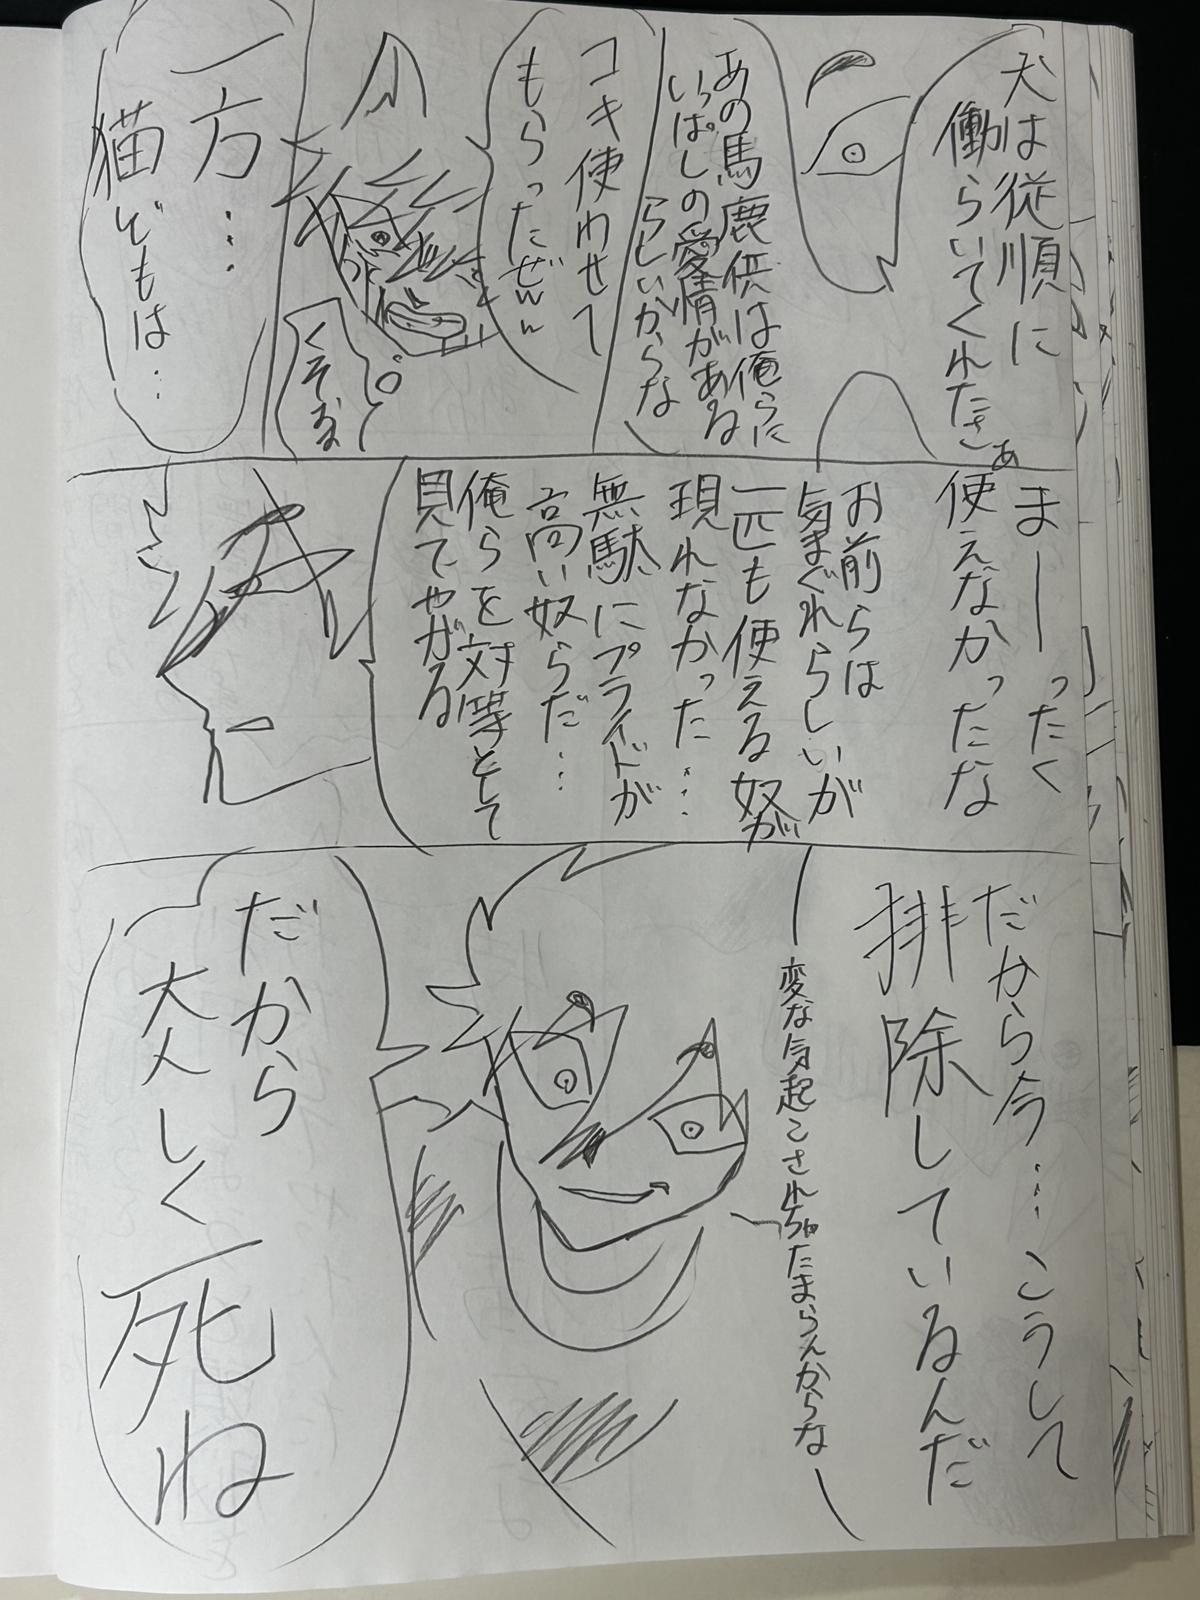 犬は従順に
働らいてくれたさぁ
あの馬鹿供は俺らに
いっぱしの愛情がある
らしいからな
コキ使わせて
もらったぜww
くそが
一方…
猫どもは…
まーったく
使えなかったな
お前らは
気まぐれらしいが
一匹も使える奴が
現れなかった…
無駄にプライドが
高い奴らだ…
俺らを対等として
見てやがる
だから今…こうして
排除しているんだ
変な気起こされちゃたまらんからな
だから
大人しく
死ね